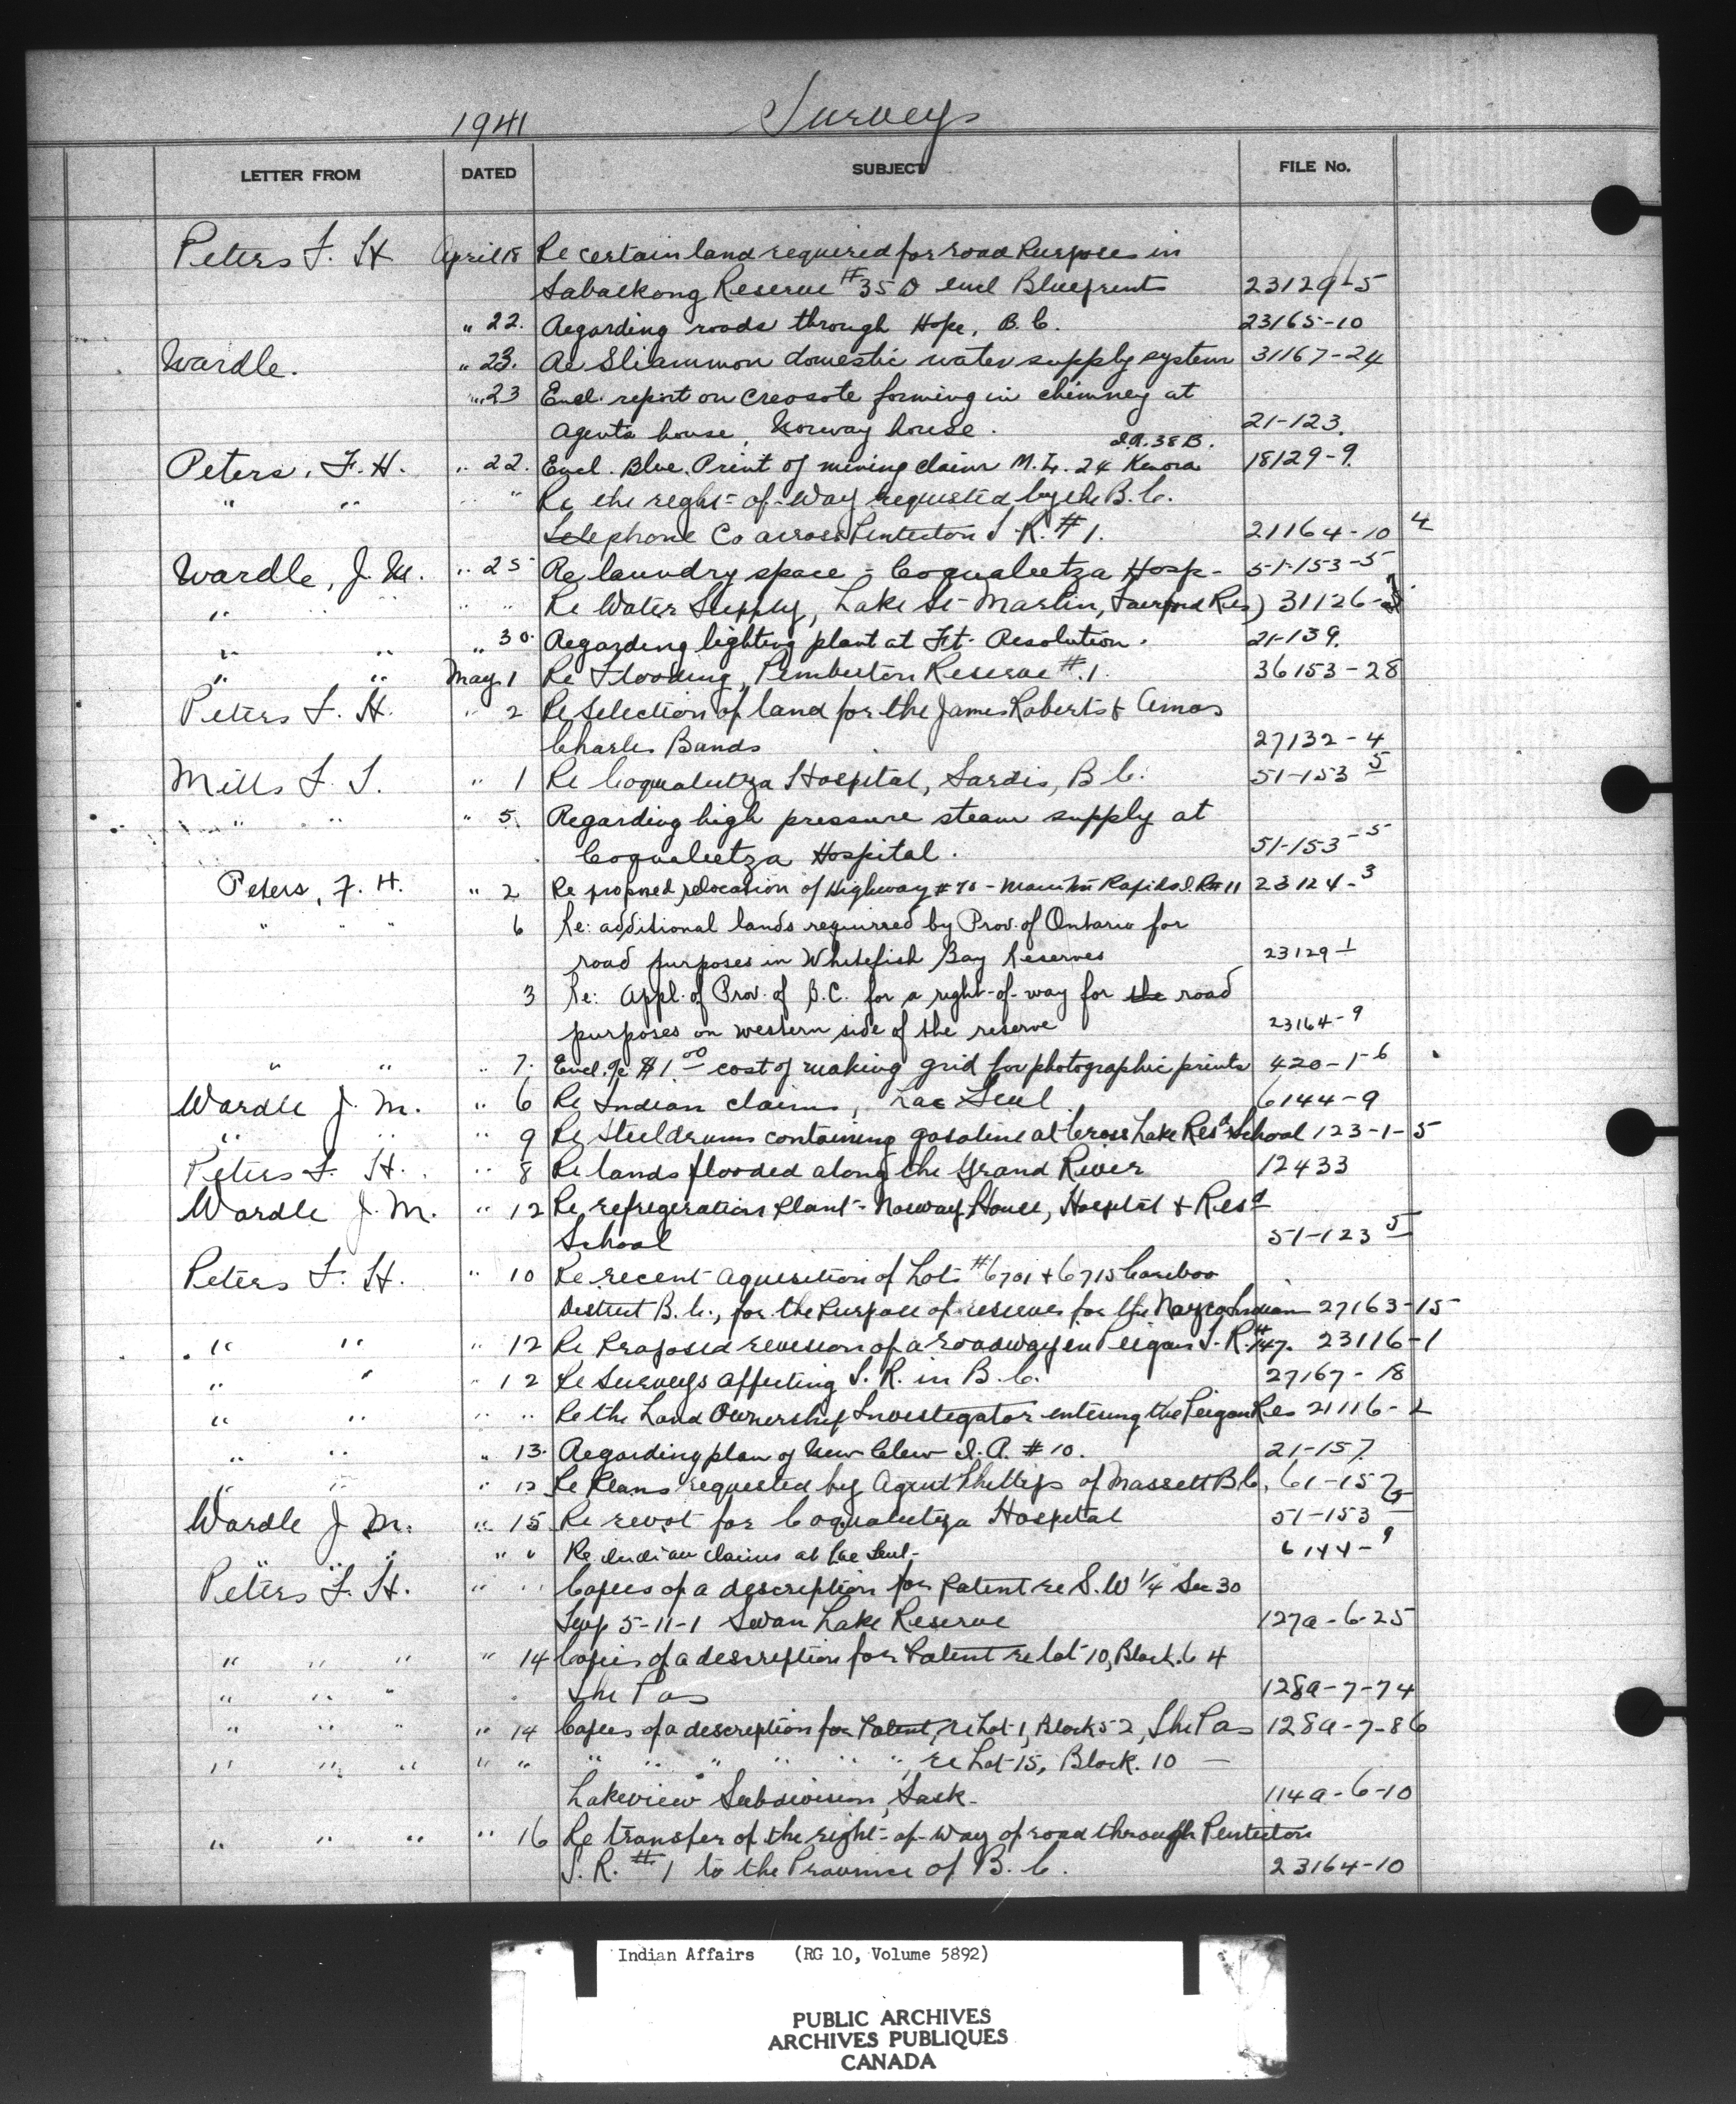 1941 Surveys
LETTER FROM DATED SUBJECT FILE No.
Peters F. H. April 18 Re certain land required for road Purposes in
Sabaskong Reserve #35 D encl Blueprints 23129-5
" 22. Regarding roads through Hope, B.C. 23165-10
Wardle. " 23. Re Sliammon domestic water supply system 31167-24
" 23 Encl. report on creosote forming in chimney at
Agents house, Norway house. 21-123.
I.R. 38B.
Peters, F. H. " 22. Encl. Blue Print of mining claim M.L. 24 Kenora 18129-9.
" " " " Re the right-of-way requested by the B.C.
Telephone Co across Penticton I.R. #1. 21164-10 4
Wardle, J. M. " 25 Re laundry space - Coqualeetza Hosp- 51-153-5
" " " " " Re Water Supply, Lake St Martin, Fairford Res) 31126-
" " " 30. Regarding lighting plant at Ft. Resolution. 21-139.
" " May 1 Re Flooding, Pemberton Reserve #1. 36153-28
Peters F. H. " 2 Re Selection of land for the James Roberts & Amos
Charles Bands 27132-4
Mills F. S. " 1 Re Coqualeetza Hospital, Sardis, B.C. 51-153 5
" " " 5. Regarding high pressure steam supply at
Coqualeetza Hospital. 51-153-5
Peters, F. H. " 2 Re proposed relocation of Highway #70 - Manitou Rapids I.R#11 23124-3
" " " 6 Re: additional lands requirred by Prov. of Ontario for
road purposes in Whitefish Bay Reserves 23129-1
3 Re: Appl. of Prov. of B.C. for a right-of-way for the road
purposes on western side of the reserve 23164-9
" " " 7. Encl. a/c $1.00 cost of making grid for photographic prints 420-1-6
Wardle J. M. " 6 Re Indian claims, Lac Seul 6144-9
" " " 9 Re Steel drums containing gasoline at Cross Lake Res'd School 123-1-5
Peters F. H. " 8 Re lands flooded along the Grand River 12433
Wardle J. M. " 12 Re refrigeration Plant - Norway House, Hospital & Resd
School 51-123 5
Peters F. H. " 10 Re recent aquisition of Lots #6701 & 6715 Cariboo
District B.C., for the Purpose of reserves for the Nazco Indian 27163-15
" " " 12 Re Proposed revision of a roadway in Peigan I.R. #147. 23116-1
" " " 12 Re Surveys affecting I.R. in B.C. 27167-18
" " " " Re the Land Ownership Investigator entering the Peigan Res 21116-2
" " " 13. Regarding plan of New Clew I.R. #10. 21-157
" " " 12 Re Plans requested by Agent Phillips of Massett B.C. 61-157
Wardle J. M. " 15 Re revot for Coqualeetza Hospital 51-153 5
" " " " Re Indian claims at Lac Seul- 6144-9
Peters F. H. " " Copies of a description for Patent re S.W 1/4 Sec 30
Twp 5-11-1 Swan Lake Reserve 127a-6-25
" " " " 14 Copies of a description for Patent re lot 10, Block. 4
" " " The Pas 128a-7-74
" " " " 14 Copies of a description for Patent, re Lot 1, Block 52, The Pas 128a-7-86
" " " " " " " " " " " re Lot 15, Block. 10 —
Lakeview Subdivision, Sask- 114a-6-10
" " " " 16 Re transfer of the right-of-way of road through Penticton
I.R. #1 to the Province of B.C. 23164-10
Indian Affairs (RG 10, Volume 5892)
PUBLIC ARCHIVES
ARCHIVES PUBLIQUES
CANADA